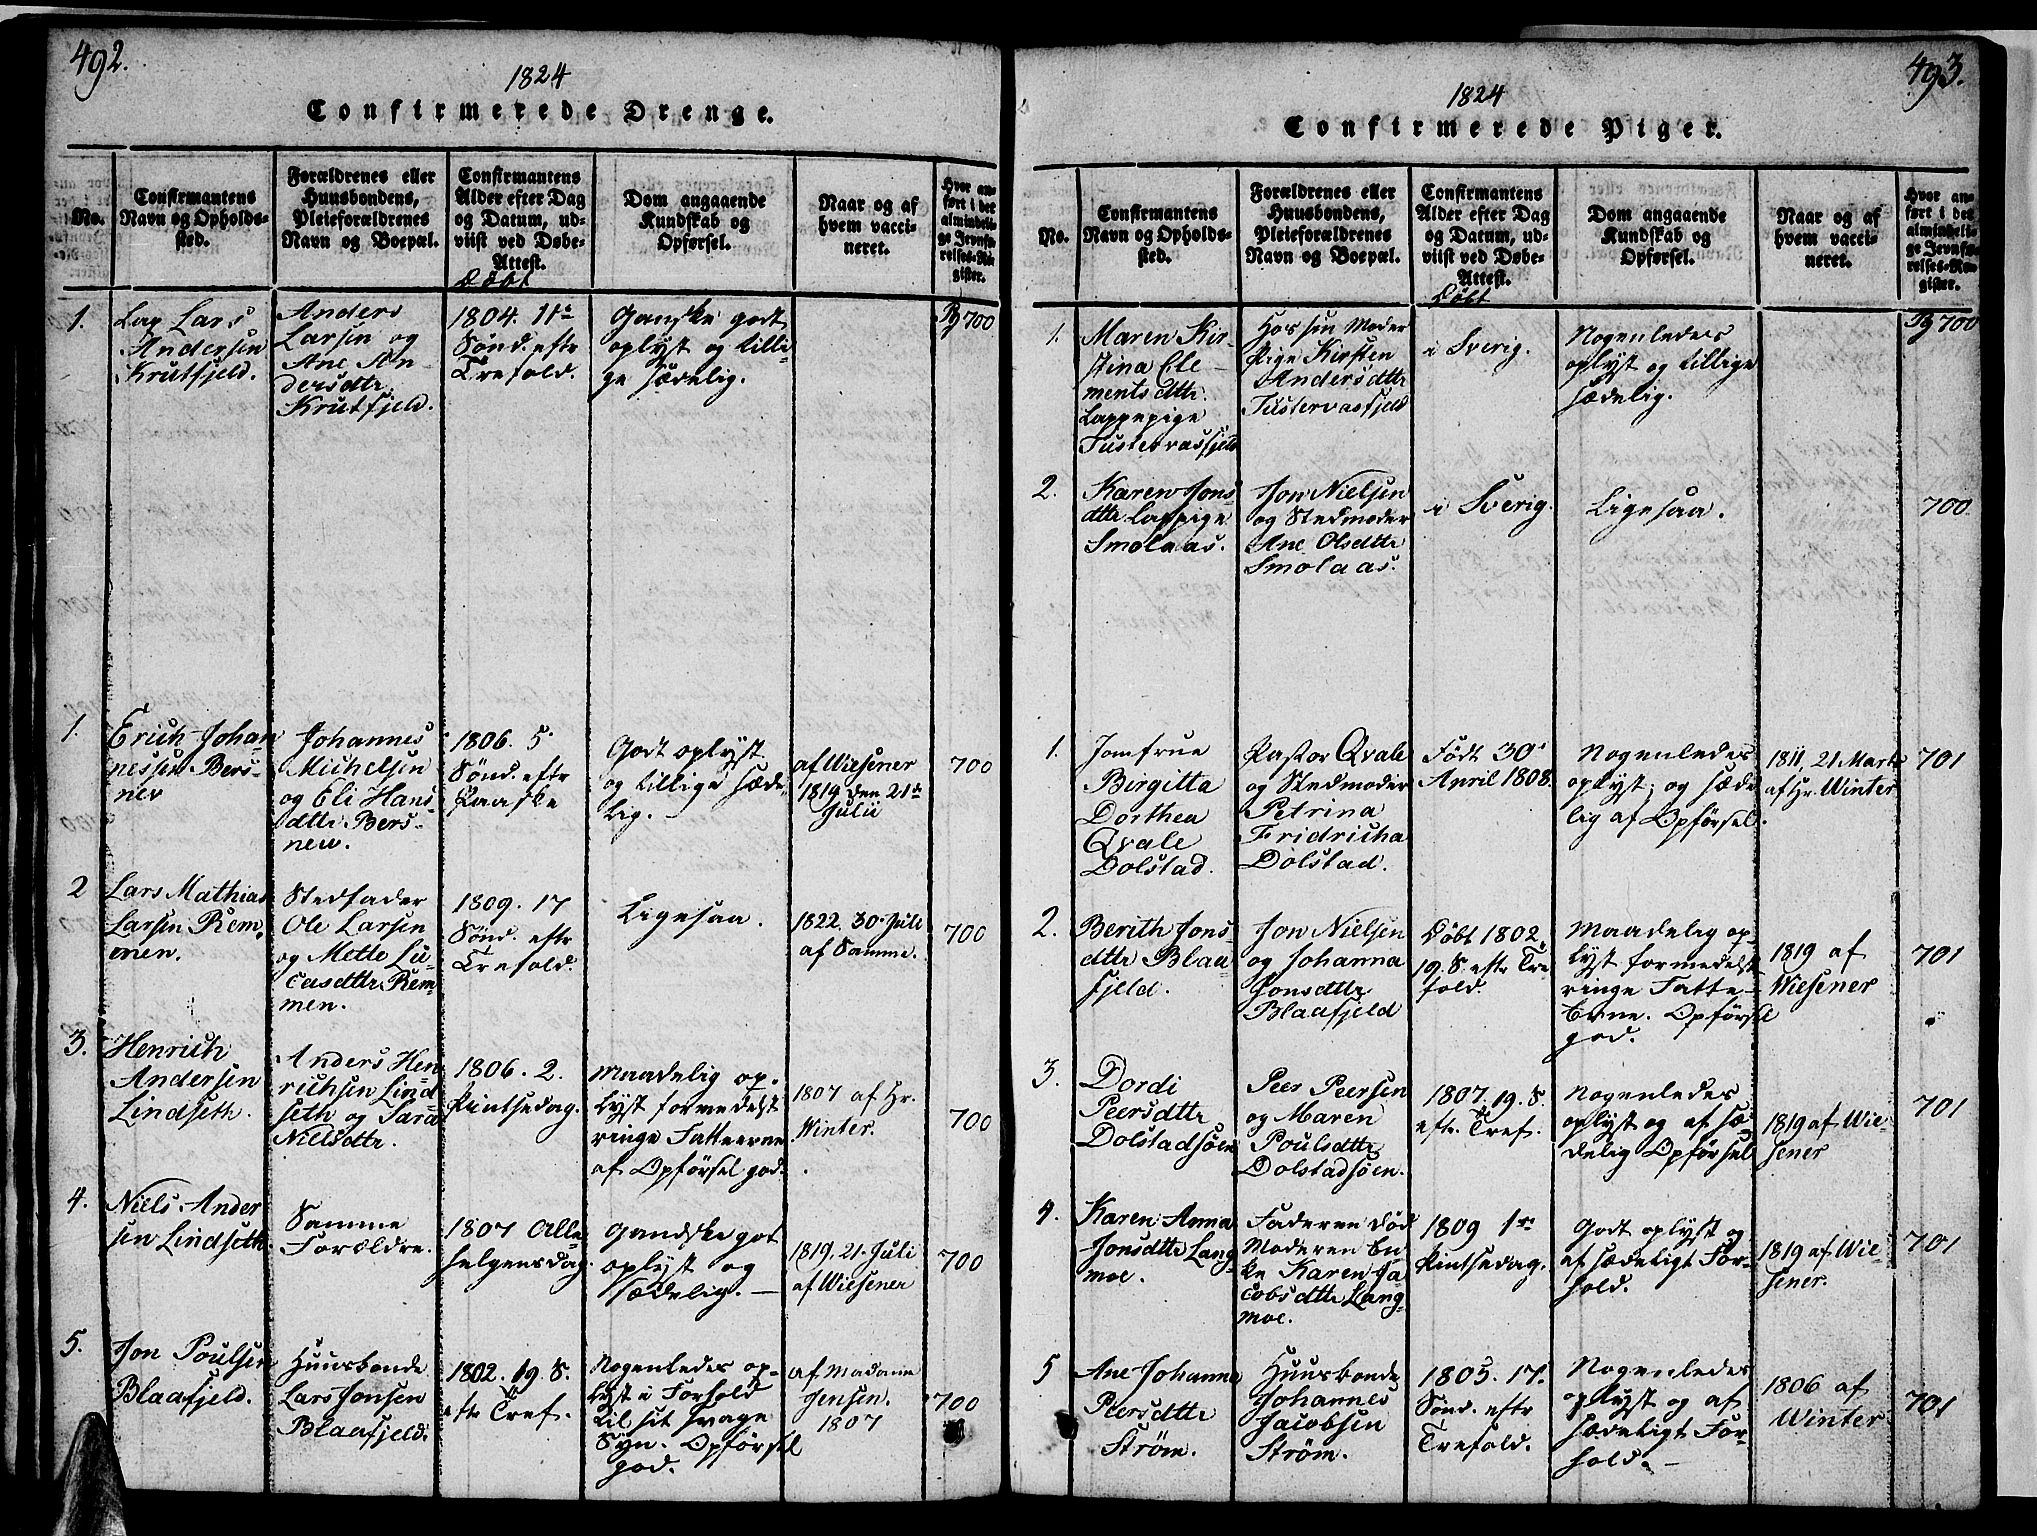 492.
1824
Confirmerede Drenge.
No.
Confirmantens
Navn og Opholds-
sted.
Forældrenes eller
Huusbondens,
Pleieforældrenes
Navn og Boepæl.
Confirmantens
Alder efter Dag
og Datum, ud-
viist ved Døbe-
Attest.
Døbt
Dom angaaende
Kundskab og
Opførsel.
Naar og af
hvem vacci-
neret.
Hvor an-
ført i det
almindeli-
ge Jevnfø-
relses-Re-
gister.
1.
Lap Lars
Andersen
Krutfjeld.
Anders
Larsen og
Ane An-
dersdttr
Krutfjeld.
1804. 11te
Sønd. eftr
Trefold.
Ganske godt
oplyst og tilli-
ge sædelig.
Pg 700
1.
Erich Johan-
nessen Bers-
nev
Johannes
Michelsen
og Eli Hans
dttr Bers-
nev.
1806. 5.
Sønd. eftr
Paaske
Godt oplyst
og tillige sæde-
lig.
af Wiesener
1819 den 21de
Julii
700
2
Lars Mathias
Larsen Rem-
men.
Stedfader
Ole Larsen
og Mette Lu-
casdttr Rem-
men.
1809. 17
Sønd. eftr
Trefold.
Ligesaa.
1822. 30. Juli
af Samme.
700
3.
Henrich
Andersen
Lindseth.
Anders Hen-
richsen Lind
seth og Sara
Nielsdttr.
1806. 2.
Pintsedag.
Maadelig op-
lyst formedelst
ringe Fatteevne
af Opførsel god.
1807 af Hr.
Winter.
700
4.
Niels Ander
sen Lindseth.
Samme
Forældre.
1807 Alle-
helgensdag.
Gandske got
oplyst og
sædelig. —
1819. 21. Juli
af Wiesener
700
5.
Jon Poulsen
Blaafjeld.
Huusbonde
Lars Jonsen
Blaafjeld.
1802. 19. S.
eftr Tref.
Nogenledes op-
lyst i Forhold
til sit svage
Syn. Opførsel
god.
af Madame
Jensen.
1807
700
493.
1824
Confirmerede Piger.
No.
Confirmantens
Navn og Opholds-
sted.
Forældrenes eller
Huusbondens,
Pleieforældrenes
Navn og Boepæl.
Confirmantens
Alder efter Dag
og Datum, ud-
viist ved Døbe-
Attest.
Døbt
Dom angaaende
Kundskab og
Opførsel.
Naar og af
hvem vacci-
neret.
Hvor an-
ført i det
almindeli-
ge Jevnfø-
relses-Re-
gister.
1.
Maren Kir-
stina Cle-
mentsdttr.
Lappepige
Tustervasfjeld
Hos sin Moder
Pige Kirsten
Andersdttr
Tustervasfjeld
i Sverig.
Nogenledes
oplyst og tillige
sædelig.
Pg 700
2.
Karen Jons
dttr Lappige
Smolaas.
Jon Nielsen
og Stedmoder
Ane Olsdttr
Smolaas.
i Sverig.
Ligesaa.
700.
1.
Jomfrue
Birgitta
Dorthea
Qvale
Dolstad.
Pastor Qvale
og Stedmoder
Petrina
Fridricha
Dolstad.
Født 30.
April 1808.
Nogenledes
oplyst; og sæde
lig af Opførsel.
1811, 21 Marts
af Hr. Winter
701
2.
Berith Jons-
dttr Blaa
fjeld.
Jon Nielsen
og Johanna
Jonsdttr
Blaafjeld
Døbt 1802.
19. S. eftr Tre
fold.
Maadelig op-
lyst formedelst
ringe Fatte-
Evne. Opførsel
god.
1819 af
Wiesener
701
3.
Dordi
Peersdttr
Dolstadsøen
Peer Peersen
og Maren
Poulsdttr
Dolstadsøen.
1807. 19. S.
eftr. Tref.
Nogenledes
oplyst og af sæ-
delig Opførsel
1819 af Wie-
sener
701
4.
Karen Anna
Jonsdttr Lang-
moe.
Faderen død
Moderen En-
ke Karen Ja
cobsdttr Lang-
moe.
1809 1ste
Pintsedag.
Godt oplyst og
af sædeligt For-
hold.
1819 af Wie-
sener.
701
5
Ane Johanna
Peersdttr
Strøm.
Huusbonde
Johannes
Jacobsen
Strøm.
1805. 17.
Sønd. eftr
Trefold.
Nogenledes
oplyst og af
sædeligt For-
hold. —
1806 af
Winter
701